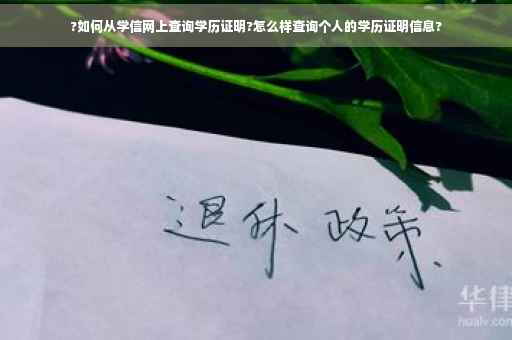 ?如何从学信网上查询学历证明?怎么样查询个人的学历证明信息?
退休 政策
华律
hualv.com